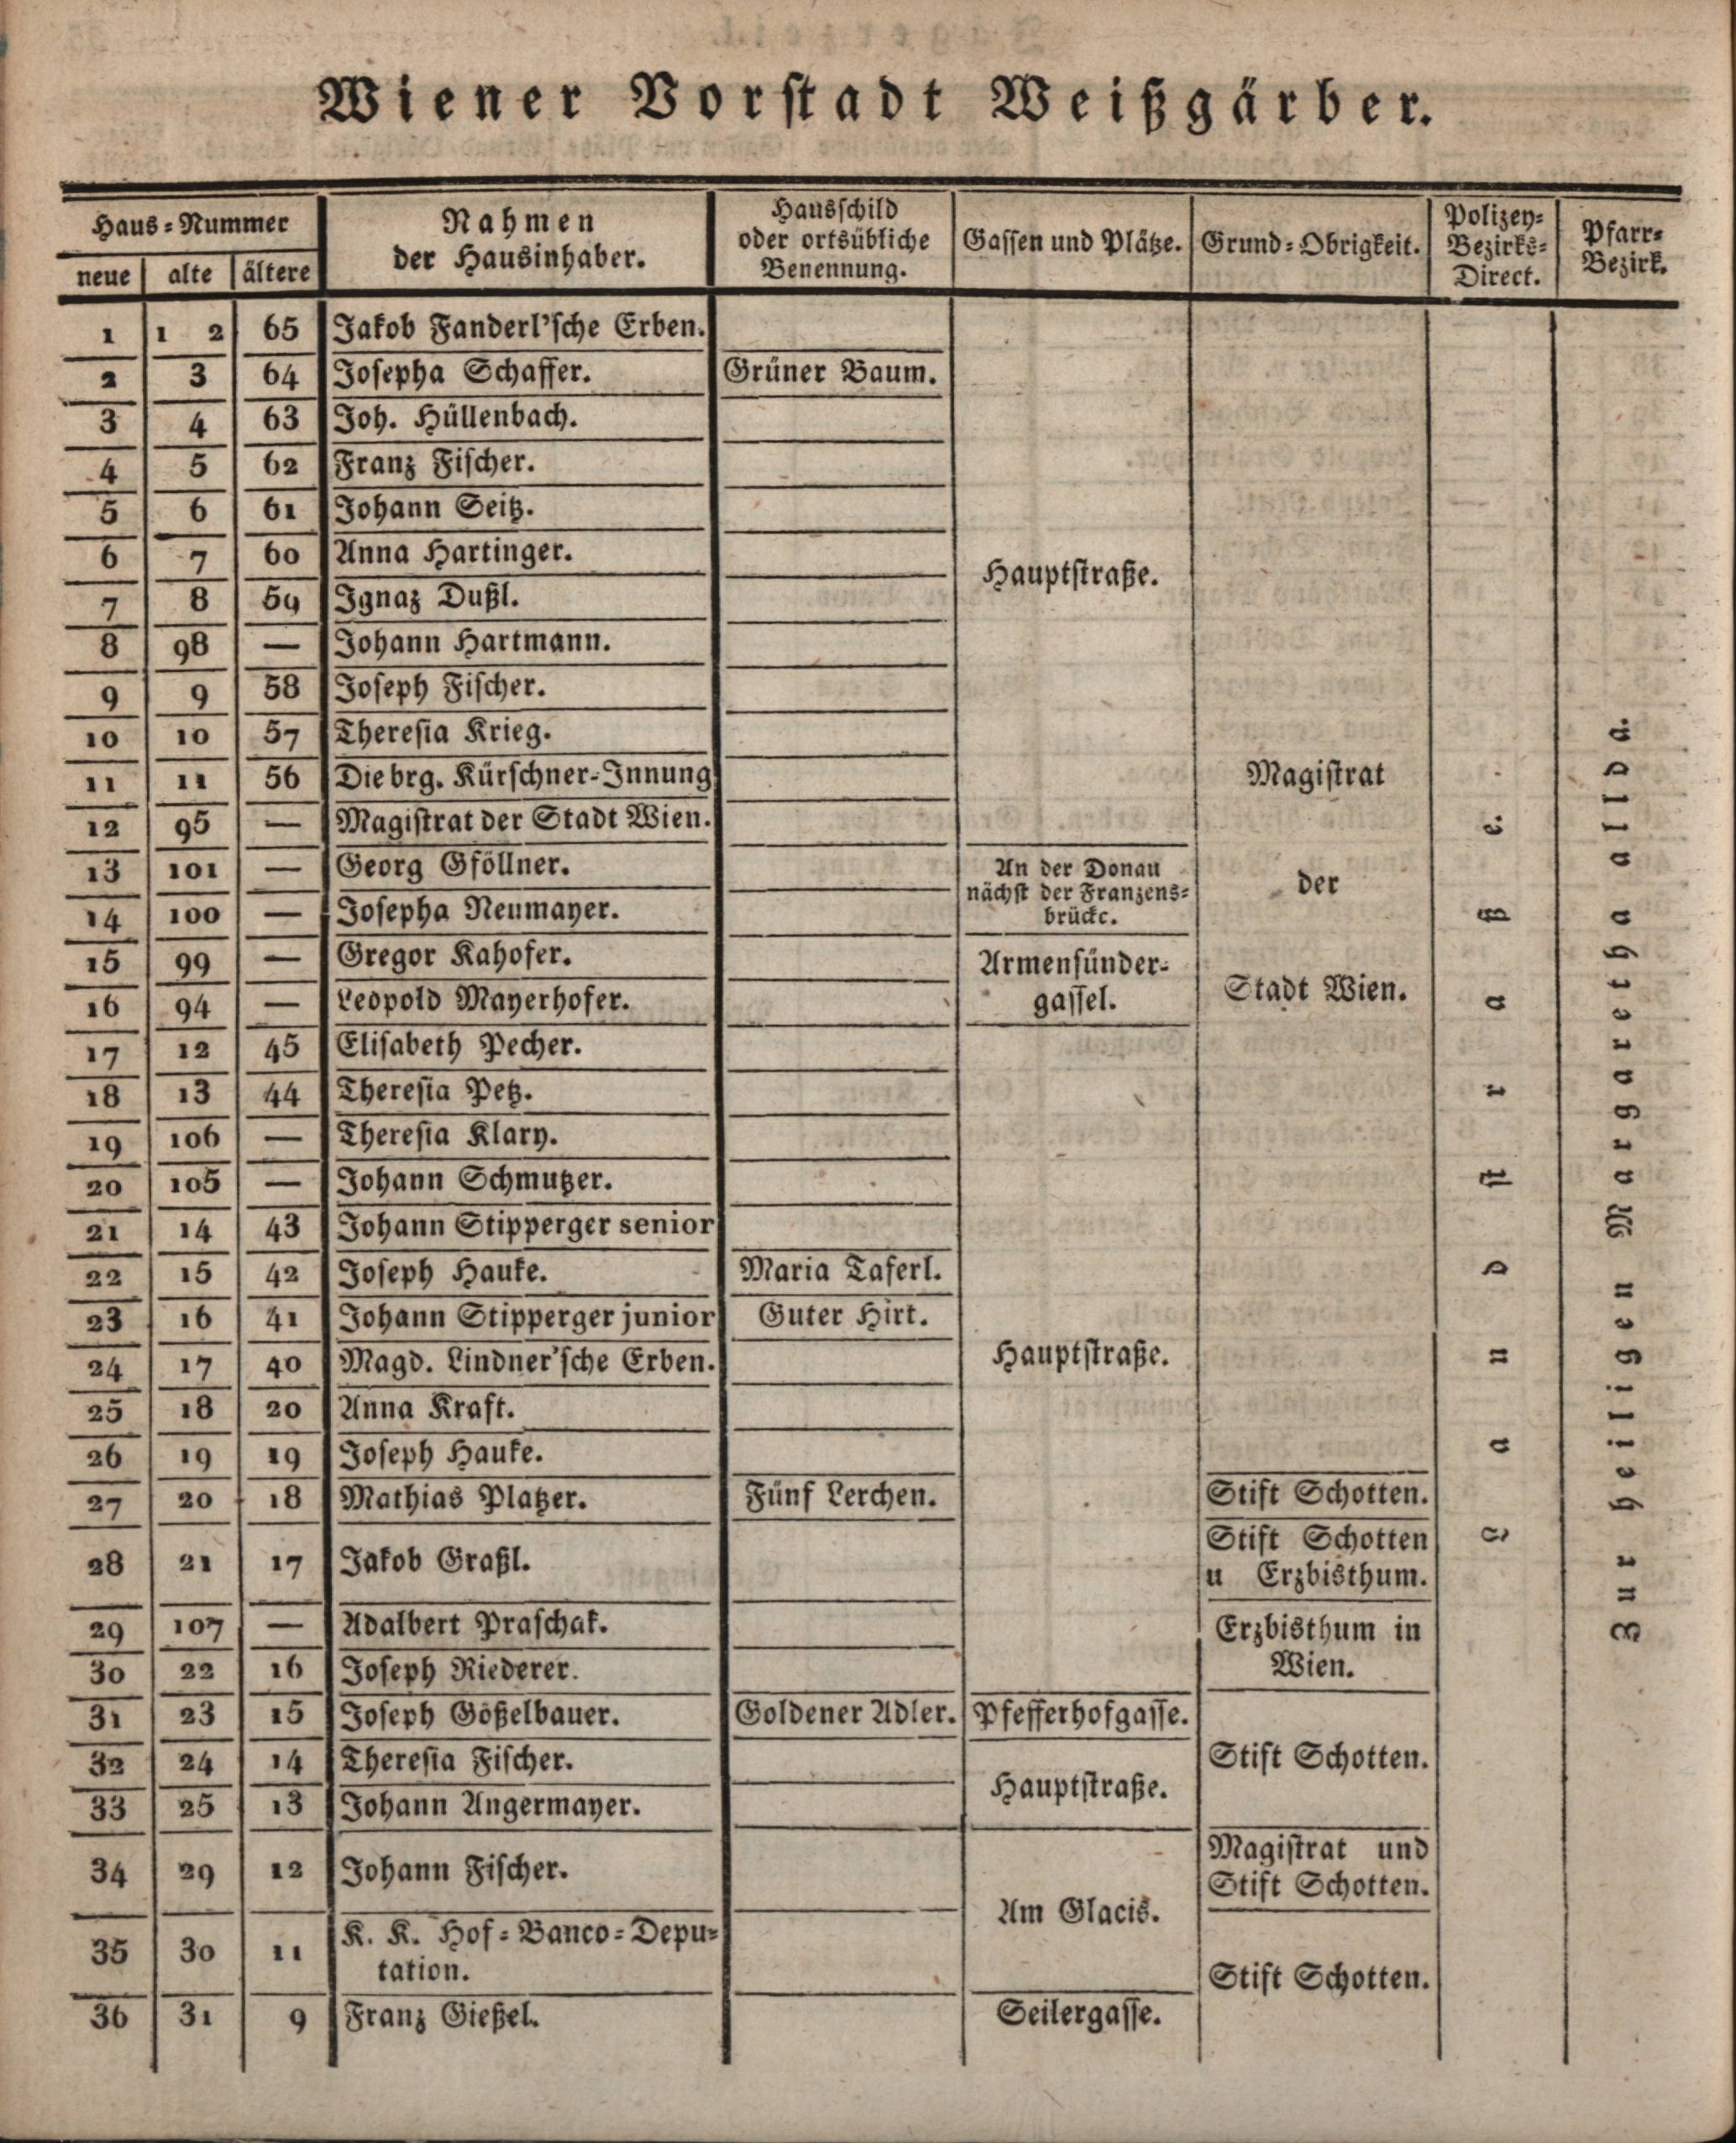 Wiener Vorstadt Weißgärber.
Haus-Nummer
neue alte ältere
Nahmen
der Hausinhaber.
Hausschild
oder ortsübliche
Benennung.
Gassen und Plätze.
Grund-Obrigkeit.
Polizey-
Bezirks-
Direct.
Pfarr-
Bezirk.
1 1 2 65 Jakob Fanderl'sche Erben.
2 3 64 Josepha Schaffer. Grüner Baum.
3 4 63 Joh. Hüllenbach.
4 5 62 Franz Fischer.
5 6 61 Johann Seitz.
6 7 60 Anna Hartinger.
Hauptstraße.
7 8 59 Ignaz Dußl.
8 98 — Johann Hartmann.
9 9 58 Joseph Fischer.
10 10 57 Theresia Krieg.
11 11 56 Die brg. Kürschner-Innung
Magistrat
12 95 — Magistrat der Stadt Wien.
13 101 — Georg Gföllner.
An der Donau
nächst der Franzens-
brücke.
der
14 100 — Josepha Neumayer.
15 99 — Gregor Kahofer.
Armensünder-
gassel.
Stadt Wien.
16 94 — Leopold Mayerhofer.
17 12 45 Elisabeth Pecher.
18 13 44 Theresia Petz.
19 106 — Theresia Klary.
20 105 — Johann Schmutzer.
21 14 43 Johann Stipperger senior
22 15 42 Joseph Hauke. Maria Taferl.
23 16 41 Johann Stipperger junior Guter Hirt.
24 17 40 Magd. Lindner'sche Erben. Hauptstraße.
25 18 20 Anna Kraft.
26 19 19 Joseph Hauke.
27 20 18 Mathias Platzer. Fünf Lerchen. Stift Schotten.
28 21 17 Jakob Graßl.
Stift Schotten
u Erzbisthum.
29 107 — Adalbert Praschak.
Erzbisthum in
Wien.
30 22 16 Joseph Riederer.
31 23 15 Joseph Gößelbauer. Goldener Adler. Pfefferhofgasse.
32 24 14 Theresia Fischer. Stift Schotten.
Hauptstraße.
33 25 13 Johann Angermayer.
34 29 12 Johann Fischer.
Magistrat und
Stift Schotten.
Am Glacis.
35 30 11 K. K. Hof-Banco-Depu-
tation.
Stift Schotten.
36 31 9 Franz Gießel. Seilergasse.
Landstraße.
Zur heiligen Margaretha allda.